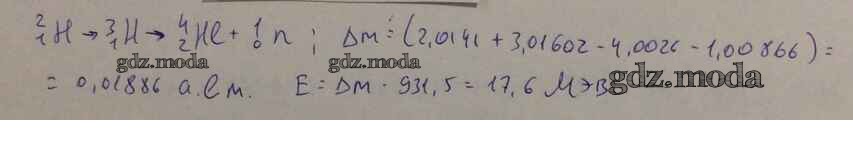 ²₁H → ³₁H → ⁴₂He + ¹₀n ; Δm = (2,0141 + 3,01602 - 4,0026 - 1,00866) =
gdz.moda gdz.moda
= 0,01886 а.е.м. E = Δm · 931,5 = 17,6 МэВ gdz.moda